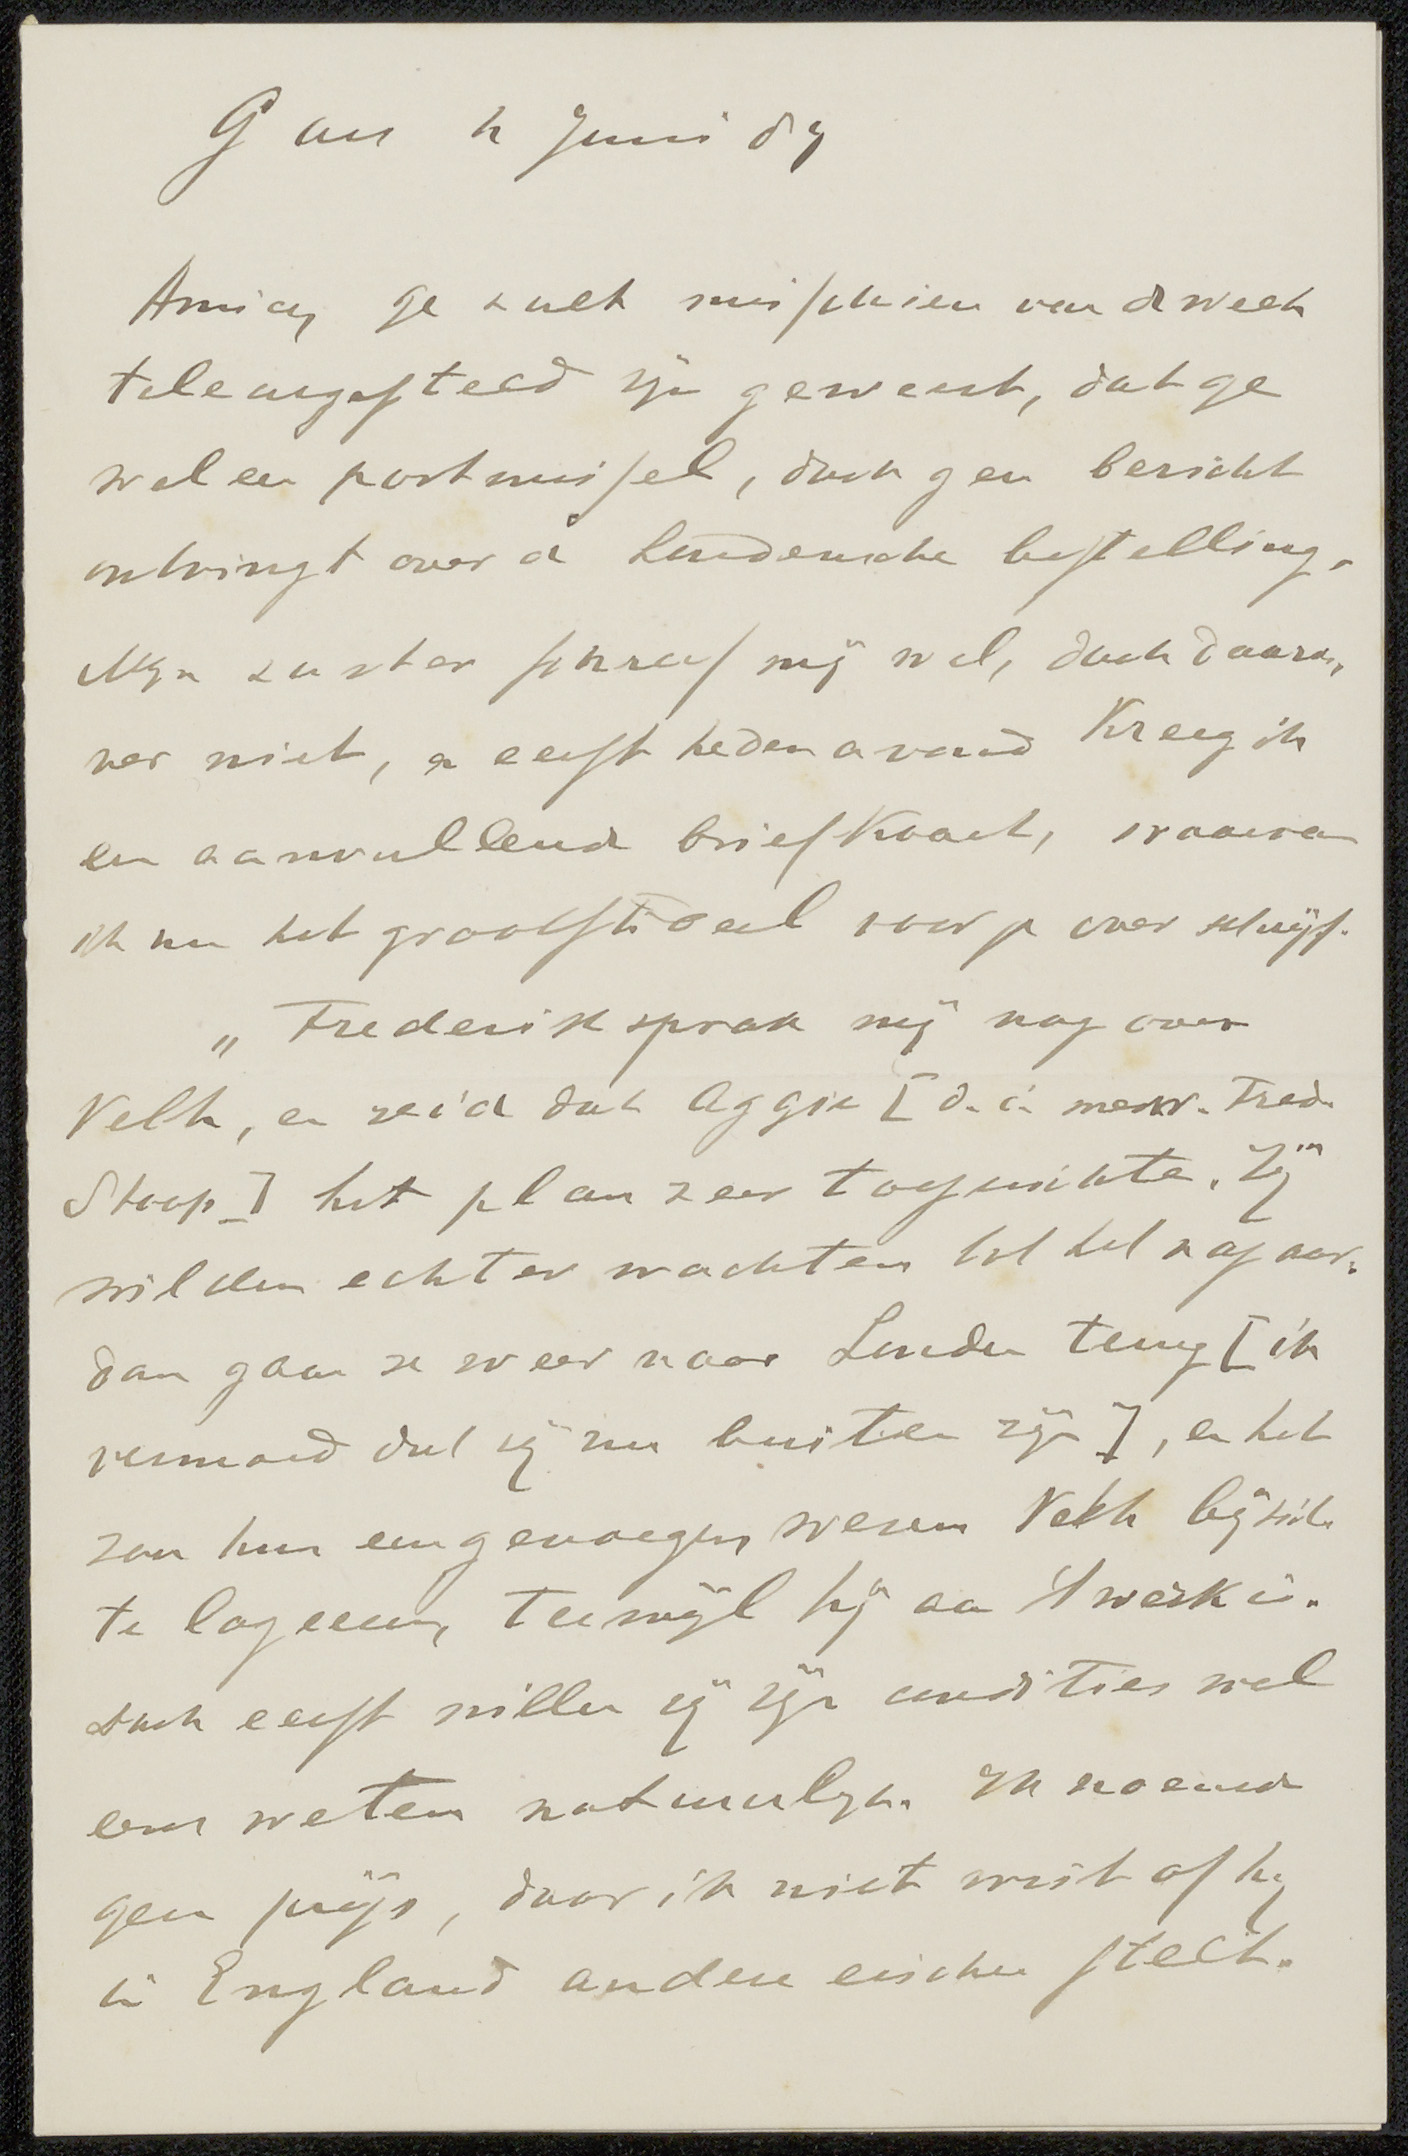 Juni
Amice, ge zult misschien van de week
teleurgesteld zijn geweest, dat ge
wel een postwissel, doch geen bericht
ontvingt over de Londensche bestelling.
Mijn zuster schreef mij wel, doch daaro-
ver niet, en eerst heden avond Kreeg ik
een aanvullende briefkaart, waarvan
ik nu het grootste deel voor je over schrijf.
„Frederik sprak mij nog over
Veth, en zeide dat Aggie [d.i. mevr. Fred.
Stoop] het plan zeer toejuichte. Zij
wilden echter wachten tot het najaar.
dan gaan ze weer naar Londen terug [ik
vermoed dat zij nu buiten zijn], en het
zou hun een genoegen wezen Veth bij zich
te logeeren, terwijl hij aan 't werk is.
Doch eerst willen zij zijn condities wel
eens weten natuurlijk. Ik noemde
geen prijs, daar ik niet wist of hij
in England andere eischen stelt.